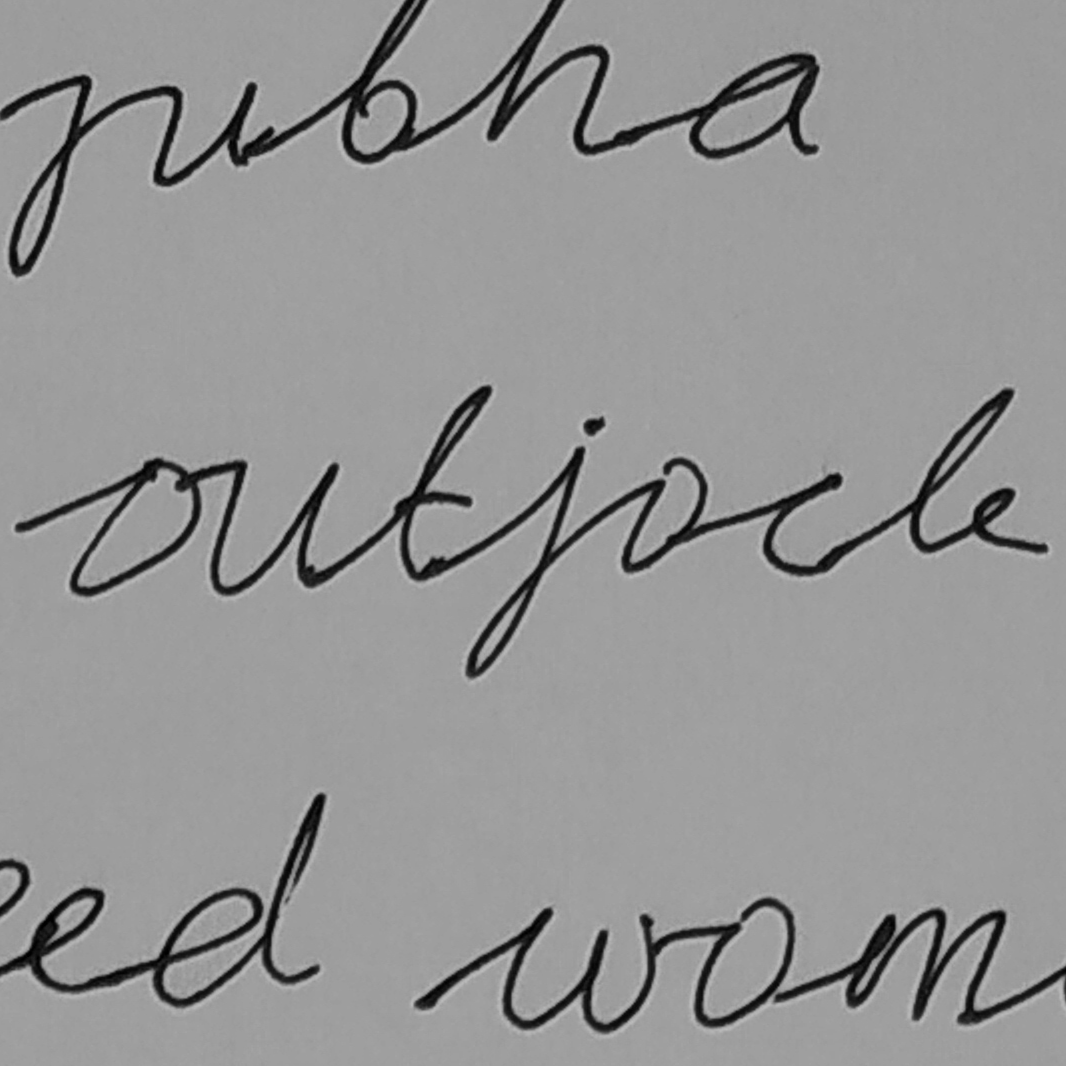 jubha
outjocle
eed wom